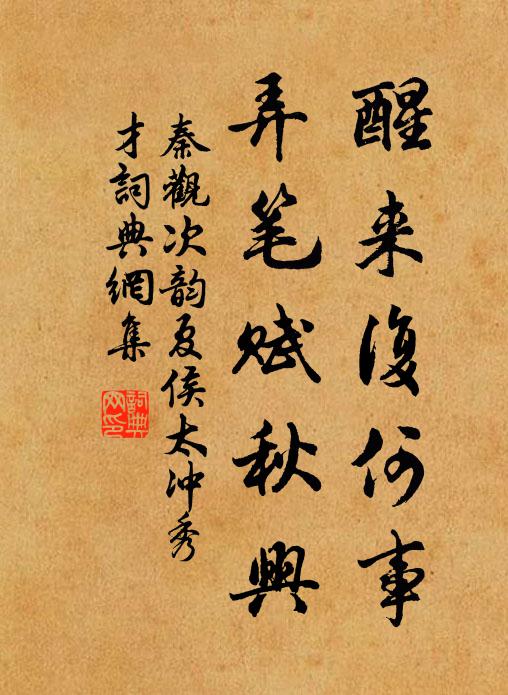 醒来復何事
弄笔赋秋興
秦觀次韵夏侯太冲秀
才詞典網集
詞典
网印